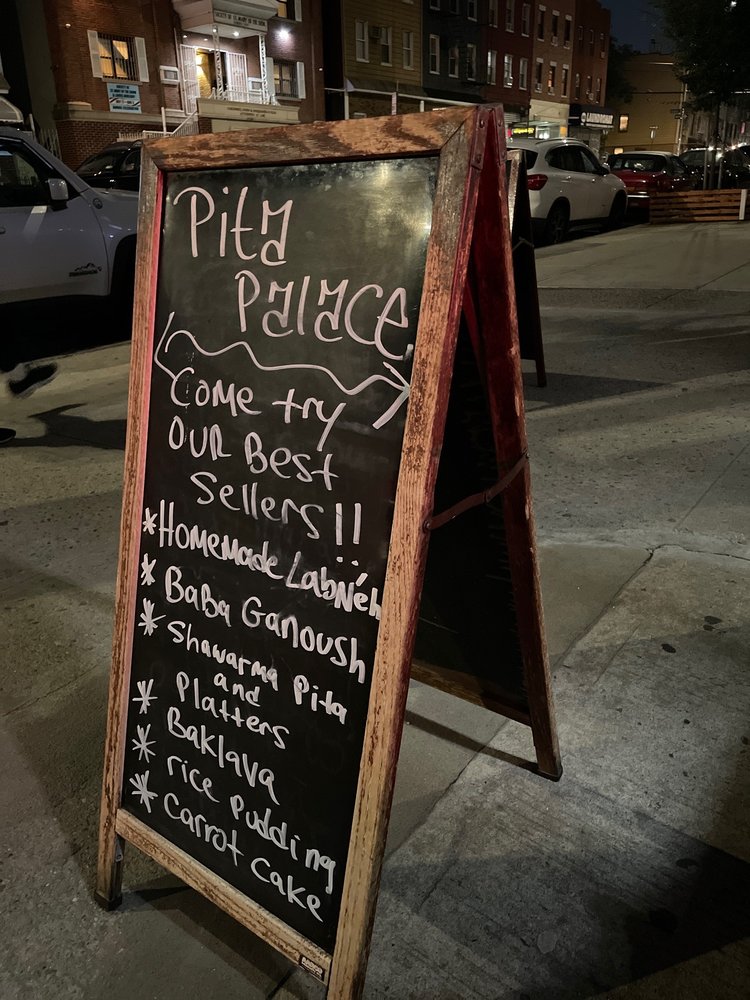 Pita
Palace
Come try
OUR Best
Sellers!!
*Homemade Labneh
* BaBa Ganoush
* Shawarma Pita
and
Platters
* Baklava
* rice pudding
* Carrot cake